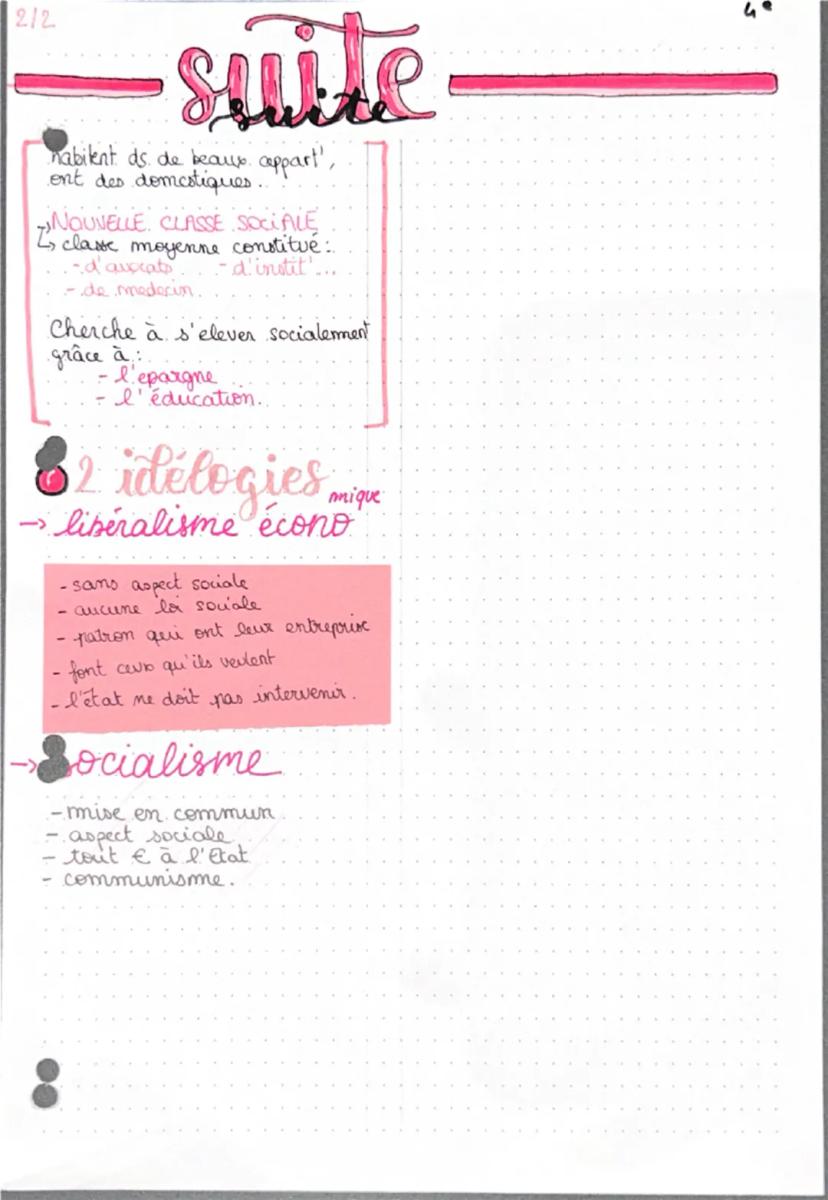 2/2
4e
suite
suite
habitent ds de beaux appart',
ont des domestiques.
NOUVELLE CLASSE SOCIALE
↳ classe moyenne constitué:
- d'avocats - d'instit'...
- de medecin
Cherche à s'elever socialement
grâce à :
- l'epargne
- l'éducation.
2 idélogies
→ libéralisme économique
- sans aspect sociale
- aucune loi sociale
- patron qui ont leur entreprise
- font ceux qu'ils veulent
- l'état ne doit pas intervenir.
→ socialisme
- mise en commun
- aspect sociale
- tout € à l'Etat
- communisme.